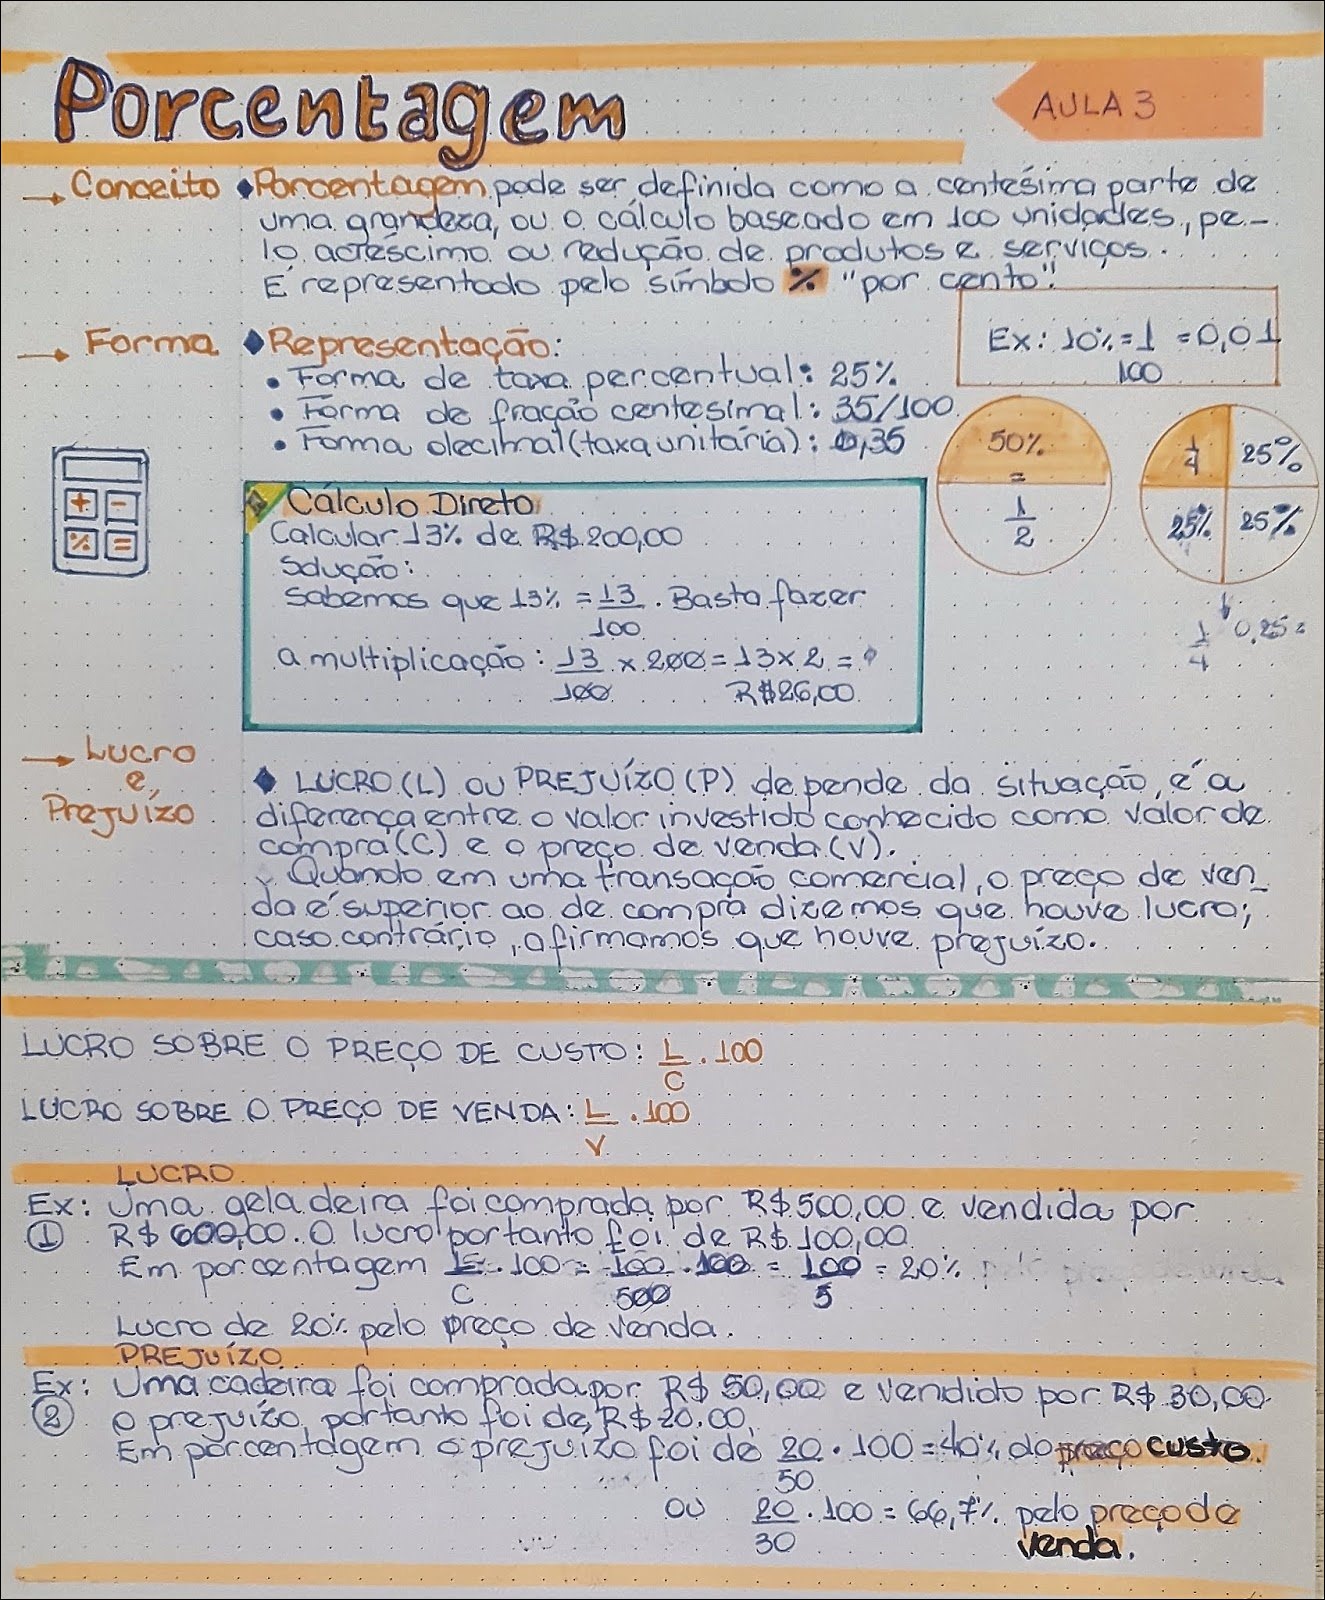 Porcentagem
AULA 3
→ Conceito ◆Porcentagem pode ser definida como a centésima parte de
uma grandeza, ou o cálculo baseado em 100 unidades, pe-
lo acréscimo ou redução de produtos e serviços.
É representado pelo símbolo % "por cento".
Ex: 10% = 1 = 0,01
100
→ Forma ◆Representação:
• Forma de taxa percentual: 25%
• Forma de fração centesimal: 35/100
• Forma decimal (taxa unitária): 0,35
50%
=
1
2
1
4
25%
25%
25%
1
4
0,25 =
+ -
% =
Cálculo Direto
Calcular 13% de R$ 200,00
Solução:
Sabemos que 13% = 13 . Basta fazer
100
a multiplicação: 13 x 200 = 13 x 2 =
100 R$ 26,00
→ Lucro
e
Prejuízo
◆ LUCRO (L) OU PREJUÍZO (P) depende da situação, é a
diferença entre o valor investido conhecido como valor de
compra (C) e o preço de venda (V).
Quando em uma transação comercial, o preço de ven_
da é superior ao de compra dizemos que houve lucro;
caso contrário, afirmamos que houve prejuízo.
LUCRO SOBRE O PREÇO DE CUSTO: L . 100
C
LUCRO SOBRE O PREÇO DE VENDA: L . 100
V
LUCRO
Ex: Uma geladeira foi comprada por R$ 500,00 e vendida por
① R$ 600,00. O lucro portanto foi de R$ 100,00
Em porcentagem L . 100 = 100 . 100 = 100 = 20%
C 500 5
Lucro de 20% pelo preço de venda.
PREJUÍZO
Ex: Uma cadeira foi comprada por R$ 50,00 e vendido por R$ 30,00
② o prejuízo portanto foi de R$ 20.00,
Em porcentagem o prejuízo foi de 20 . 100 = 40% do preço custo.
50
ou 20 . 100 = 66,7% pelo preço de
30 venda.